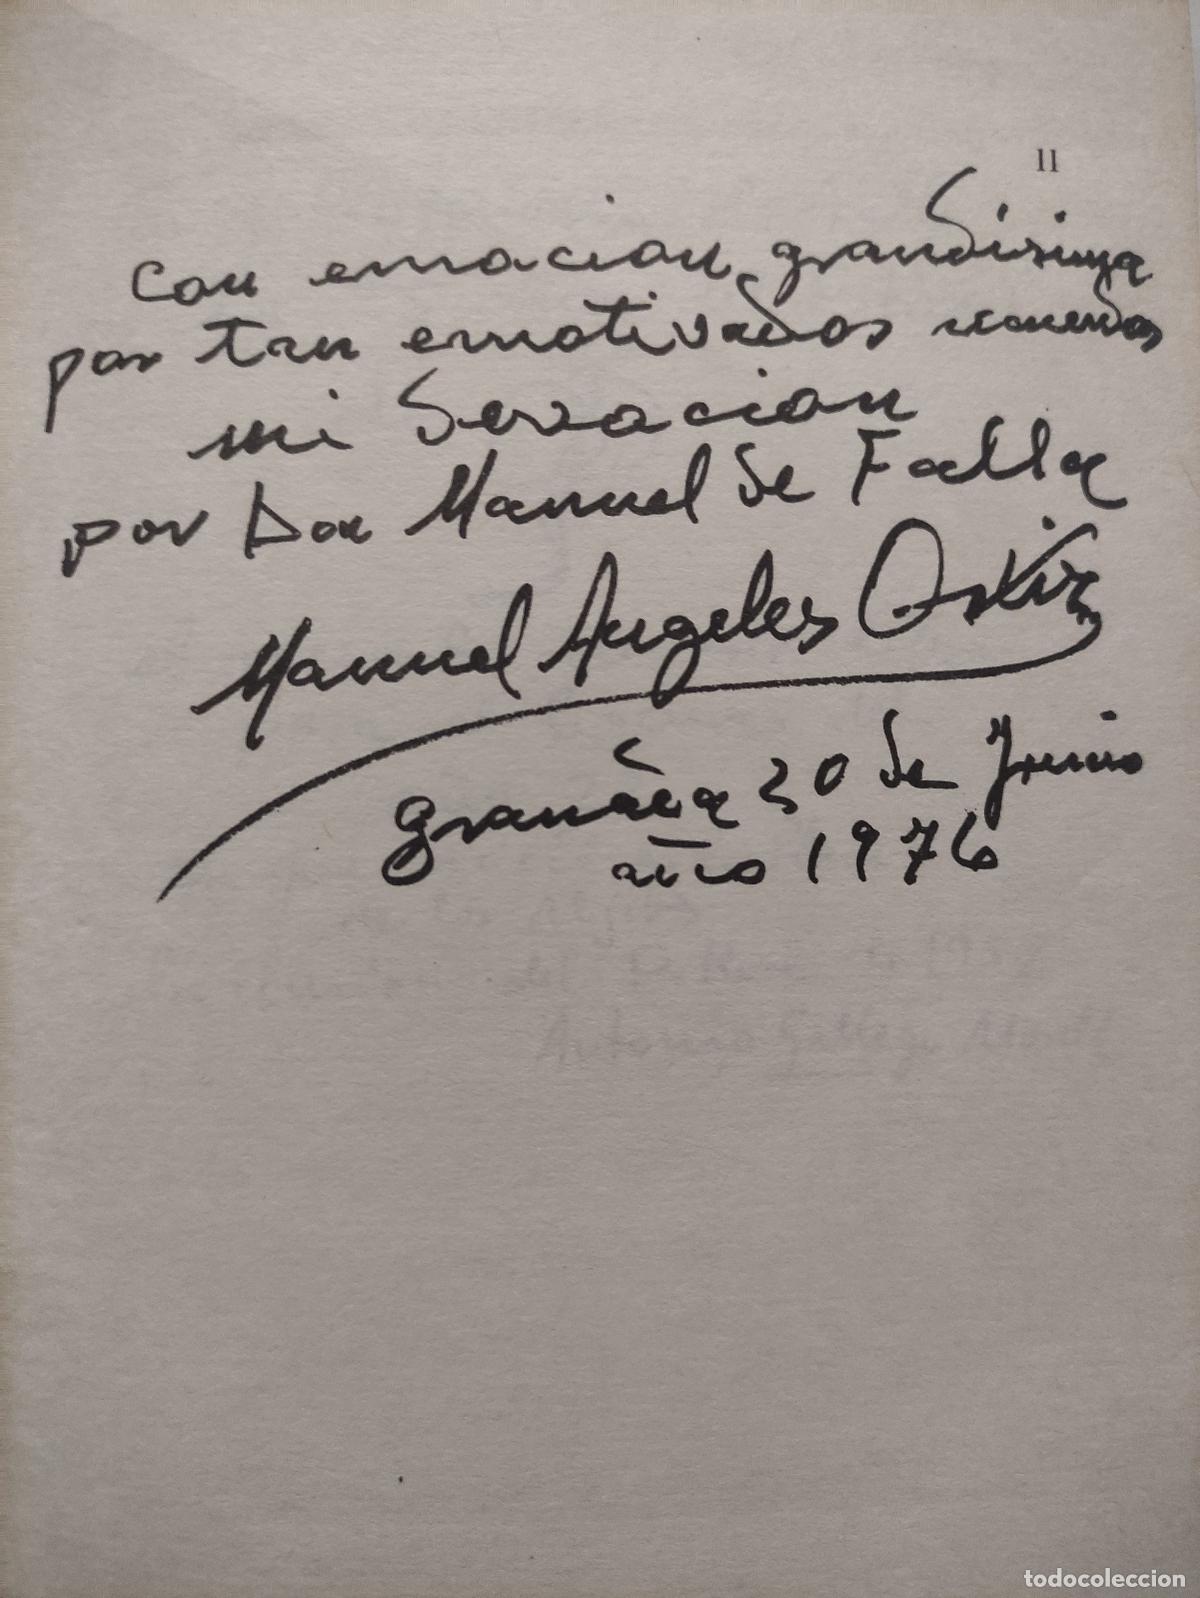 11
Con emocion grandisima
por tan emotivados recuerdos
mi devocion
por Don Manuel de Falla
Manuel Angeles Ortiz
Granada 30 de Junio
año 1976
Antonio Gallego
todocoleccion